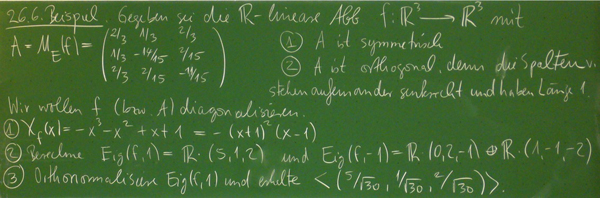 26.6. Beispiel. Gegeben sei die ℝ-lineare Abb f: ℝ³ ⟶ ℝ³ mit
A = M_E(f) = ( 2/3 1/3 2/3
1/3 -14/15 2/15
2/3 2/15 -11/15 )
① A ist symmetrisch
② A ist orthogonal, denn die Spalten v.
stehen aufeinander senkrecht und haben Länge 1.
Wir wollen f (bzw. A) diagonalisieren.
① χ_f(x) = -x³ - x² + x + 1 = -(x+1)²(x-1)
② Berechne Eig(f,1) = ℝ·(5,1,2) und Eig(f,-1) = ℝ(0,2,-1) ⊕ ℝ·(1,-1,-2)
③ Orthonormalisiere Eig(f,1) und erhalte < (5/√30, 1/√30, 2/√30) >.